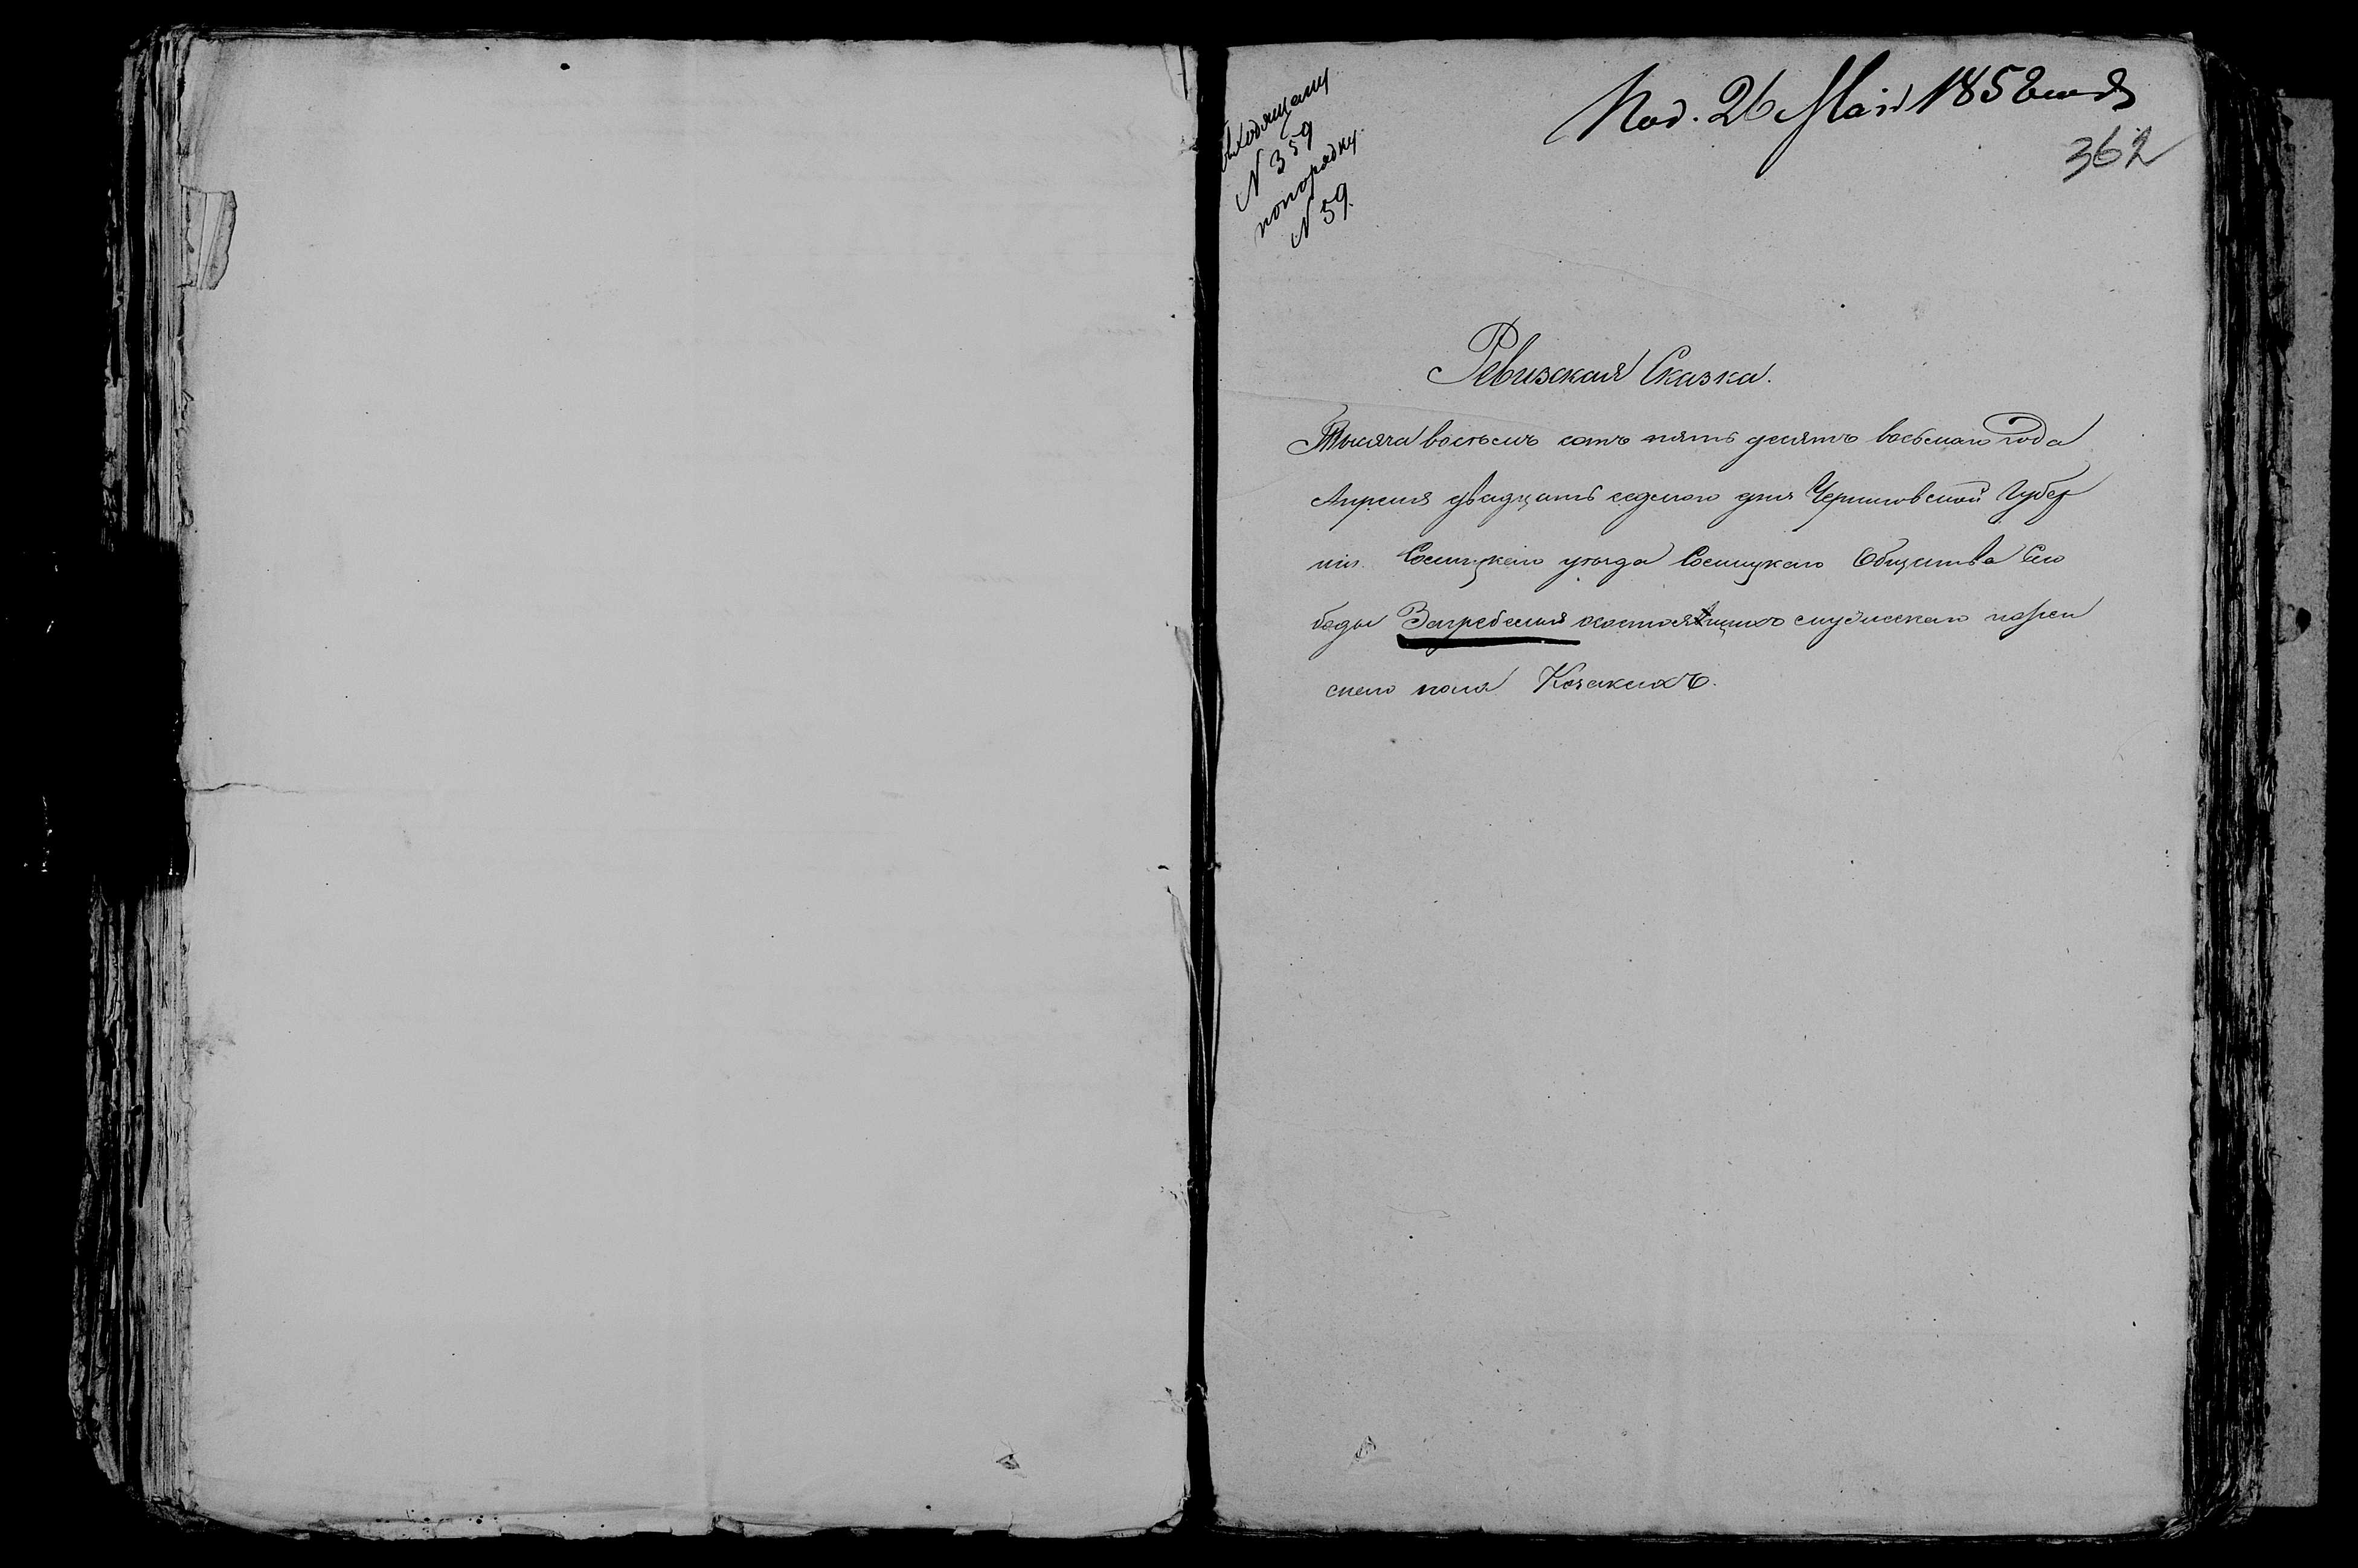 входящему
N 359
по порядку
N 59.
Под. 26 Маія 1858 года
362
Ревизская Сказка.
Тысяча восемь сотъ пять десятъ восьмого года
Апреля двадцать седмого дня Черниговской Губер
ніи Сосницкаго уезда Сосницкаго Общества Сло
боды Загребелья осостоящихъ мужескаго и женс
скаго пола Козакахъ.